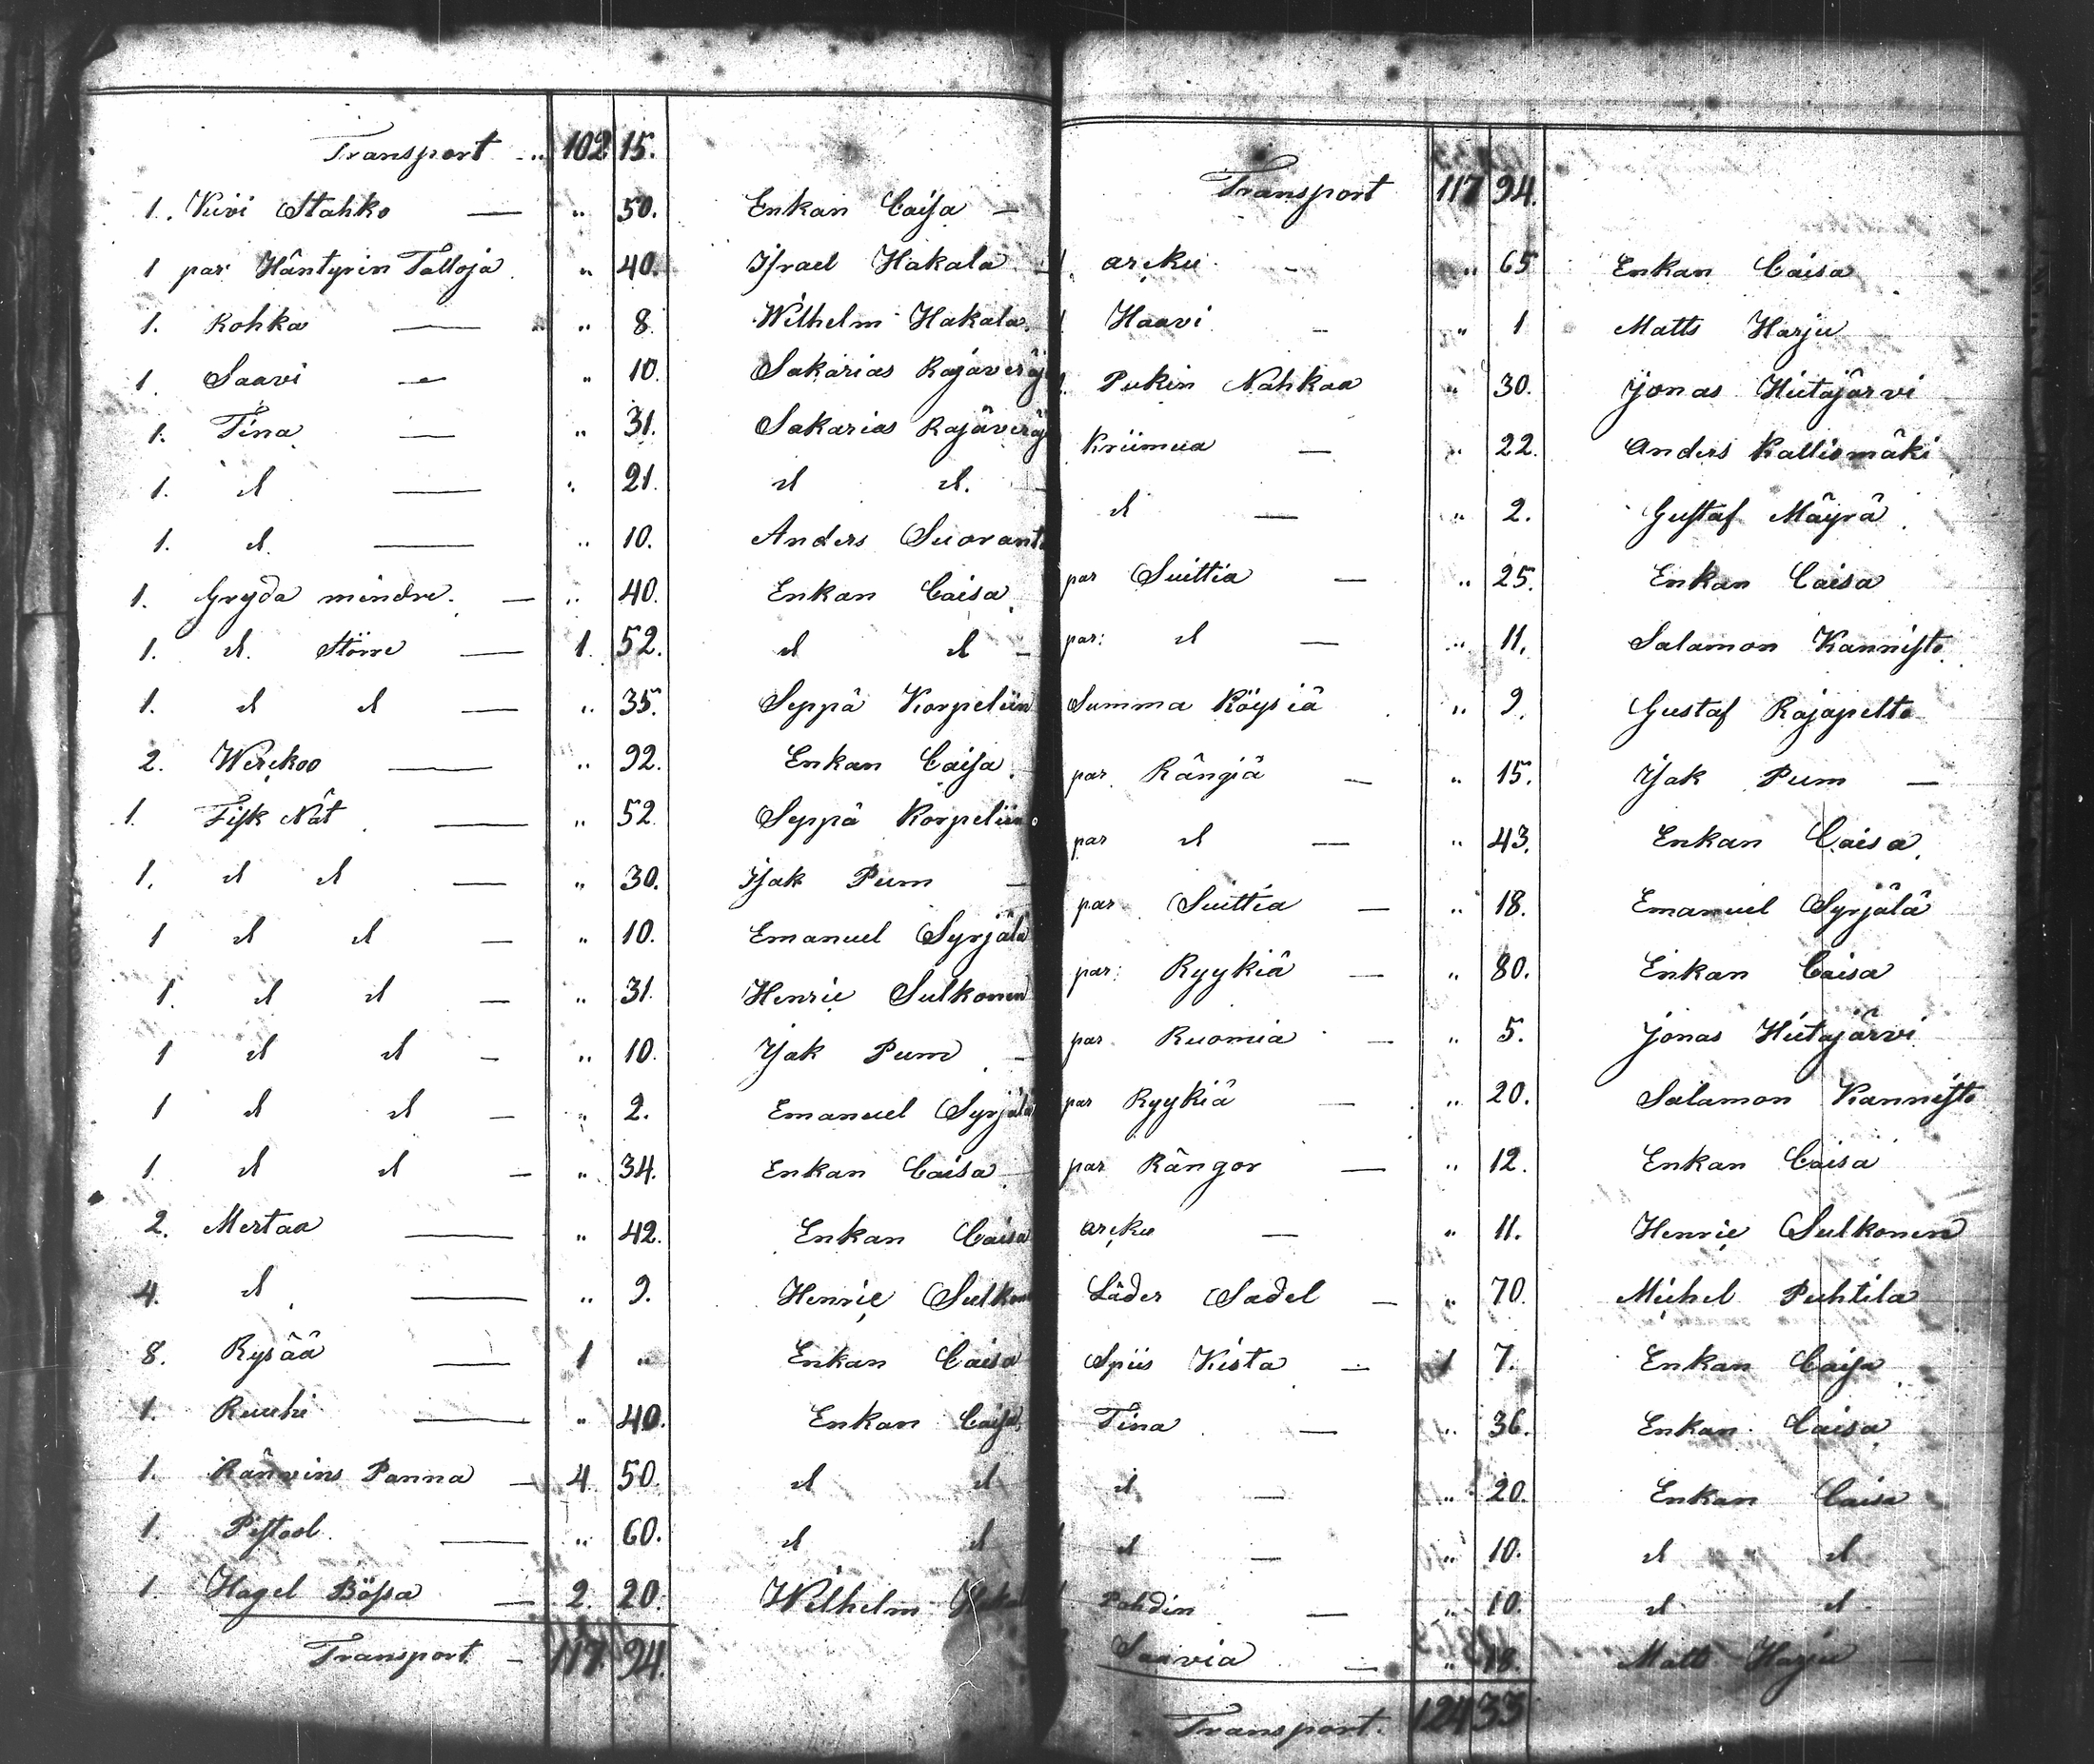 Transport 102 15.
1. Kivi Stahko — " 50. Enkan Caisa —
1 par Häntyrin Talloja " 40. Israel Hakala
1. Kohka — " 8. Wilhelm Hakala
1. Saavi — " 10. Sakarias Rajäveräj
1. Tina — " 31. Sakarias Rajäveräj
1. d — " 21. d d.
1. d. — " 10. Anders Suorant
1. Gryda mindre. — " 40. Enkan Caisa
1. d. Större — 1. 52. d d —
1. d d — " 35. Seppä Korpeliin
2. Werckoo — " 92. Enkan Caisa.
1. Fisk Nät — " 52. Seppä Korpeliin
1. d d — " 30. Isak Pum —
1 d d — " 10. Emanuel Syrjälä
1. d d — " 31. Henric Sulkonen
1 d d — " 10. Isak Pum —
1 d d — " 2. Emanuel Syrjälä
1. d d — " 34. Enkan Caisa
2. Mertaa — " 42. Enkan Caisa
4. d — " 9. Henric Sulkon
8. Rysää — 1 " Enkan Caisa
1. Ruuhi — " 40. Enkan Caisa
1. Ränvins Panna — 4. 50. d d
1. Pistool — " 60. d d
1. Hagel Bössa — 2. 20. Wilhelm
Transport — 117 94.
Transport 117 94.
arcku — " 65 Enkan Caisa
Haavi — " 1 Matts Harju
Pukin Nahkaa " 30. Jonas Hietajärvi
Kriimua — " 22. Anders Kalliomäki
d — " 2. Gustaf Mäyrä
par Suittia — " 25. Enkan Caisa
par: d — " 11. Salamon Kannisto
Summa Köysiä " 9. Gustaf Rajapelto
par Rängiä — " 15. Isak Pum —
par d — " 43. Enkan Caisa
par Suittia — " 18. Emanuel Syrjälä
par: Ryykiä — " 80. Enkan Caisa
par Ruomia — " 5. Jonas Hietajärvi
par Ryykiä — " 20. Salamon Kannisto
par Rängor — " 12. Enkan Caisa
arcku — " 11. Henric Sulkonen
Läder Sadel — " 70. Michel Puhtila
Spiis Kista — 1 7. Enkan Caisa
Tina — " 36. Enkan Caisa
d — " 20. Enkan Caisa
d — " 10. d d
— " 10. d d
Saavia — " 18. Matts Harju
Transport. 124 33